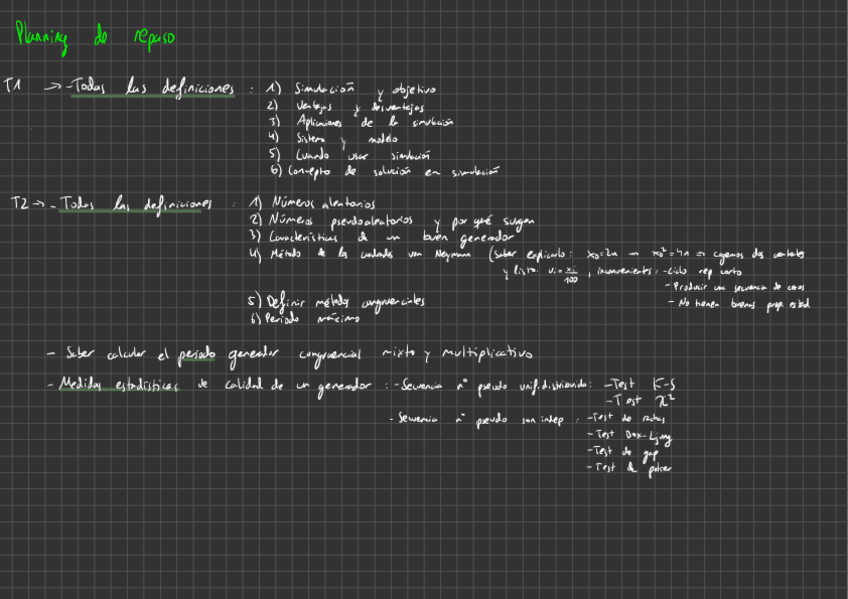 Planning de repaso
T1 → - Todas las definiciones : 1) Simulación y objetivo
2) Ventajas y desventajas
3) Aplicaciones de la simulación
4) Sistema y modelo
5) Cuando usar simulación
6) Concepto de solución en simulación
T2 → - Todas las definiciones : 1) Números aleatorios
2) Números pseudoaleatorios y por qué surgen
3) Características de un buen generador
4) Método de los cuadrados von Neymann (Saber explicarlo: x0=2n → x0²=4n → cogemos dos centrales
y listo. Ui = xi/100, inconvenientes: - Ciclo rep corto
- Producir una secuencia de ceros
- No tienen buenas prop estad
5) Definir métodos congruenciales
6) Periodo máximo
- Saber calcular el periodo generador congruencial mixto y multiplicativo
- Medidas estadísticas de calidad de un generador : - Secuencia nº pseudo unif. distribuida: - Test K-S
- Test χ²
- Secuencia nº pseudo son indep : - Test de rachas
- Test Box-Ljung
- Test de gap
- Test de poker